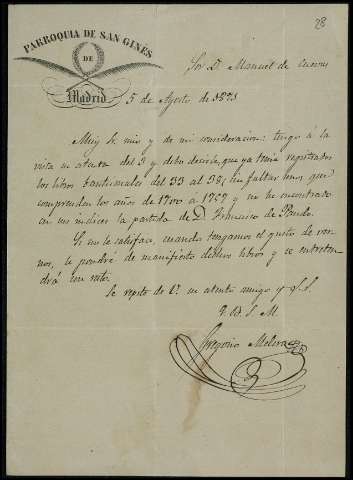 28
PARROQUIA DE SAN GINES
DE
Madrid
Sor. D. Manuel de
5 de Agosto de 1871
Muy Sr. mio y de mi consideracion: tengo a la
vista su atenta del 3 y debo decirle, que ya tenia registrados
los libros bautismales del 33 al 38, sin faltar uno, que
comprenden los años de 1700 a 1759 y no he encontrado
en sus indices la partida de D. Francisco de
Si no le satisface, cuando tengamos el gusto de
nos, le pondré de manifiesto dichos libros y se
drá un rato.
Se repite de V. su atento amigo y S. S.
Q. B. S. M.
Gregorio